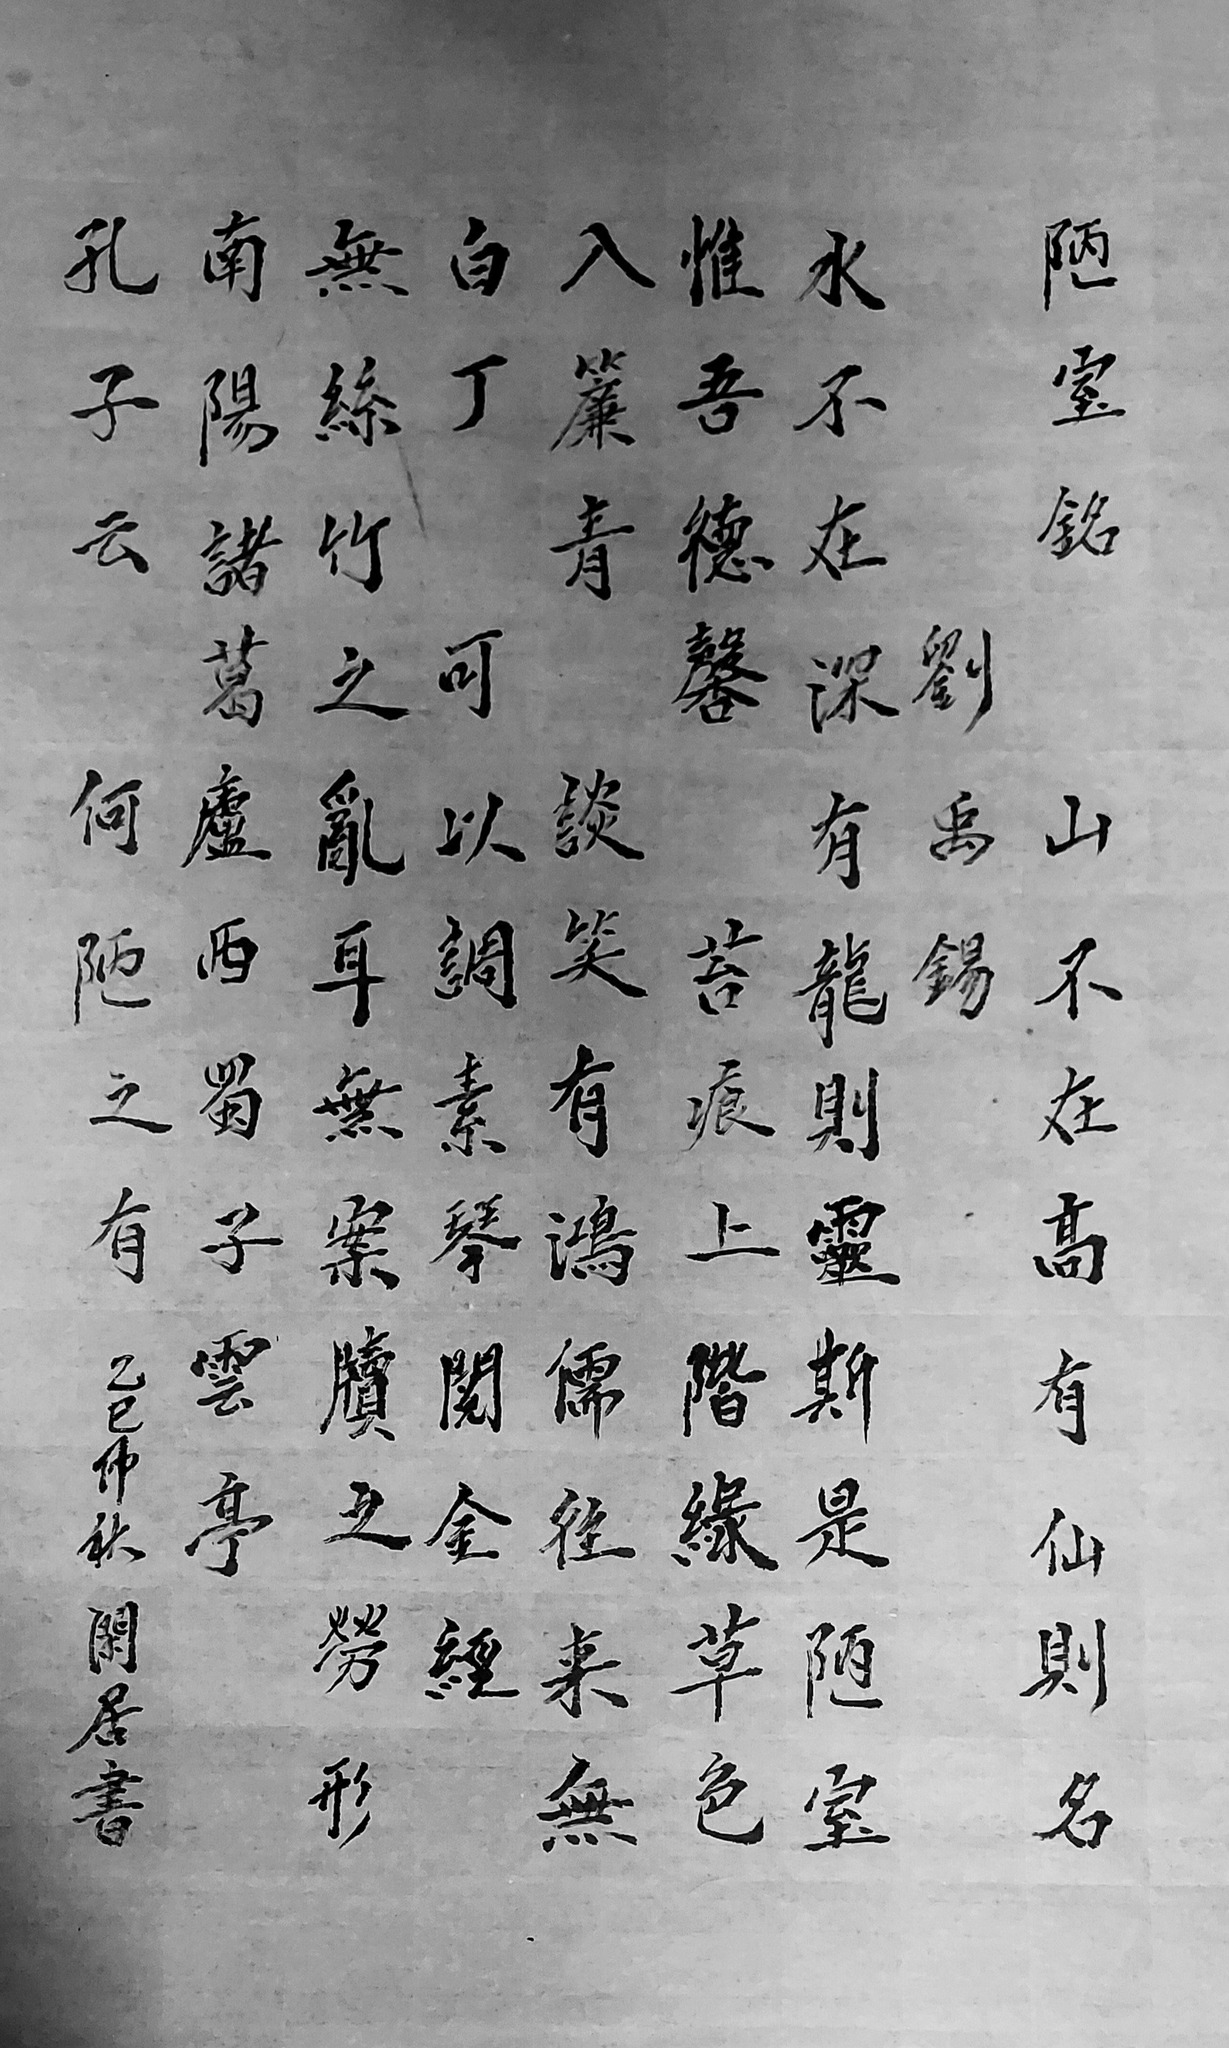 陋室銘 山不在高有仙則名
劉禹錫
水不在深有龍則靈斯是陋室
惟吾德馨 苔痕上階緣草色
入簾青 談笑有鴻儒往来無
白丁 可以調素琴閱金經
無絲竹之亂耳無案牘之勞形
南陽諸葛廬西蜀子雲亭
孔子云 何陋之有 乙巳仲秋 閑居書